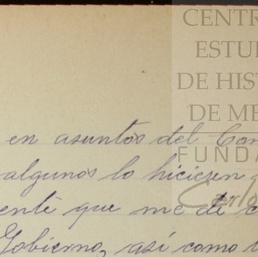 CENTR
ESTU
DE HIST
DE ME
FUNDA
en asuntos del Con
algunos lo hiciesen
ente que me di c
Gobierno, así como